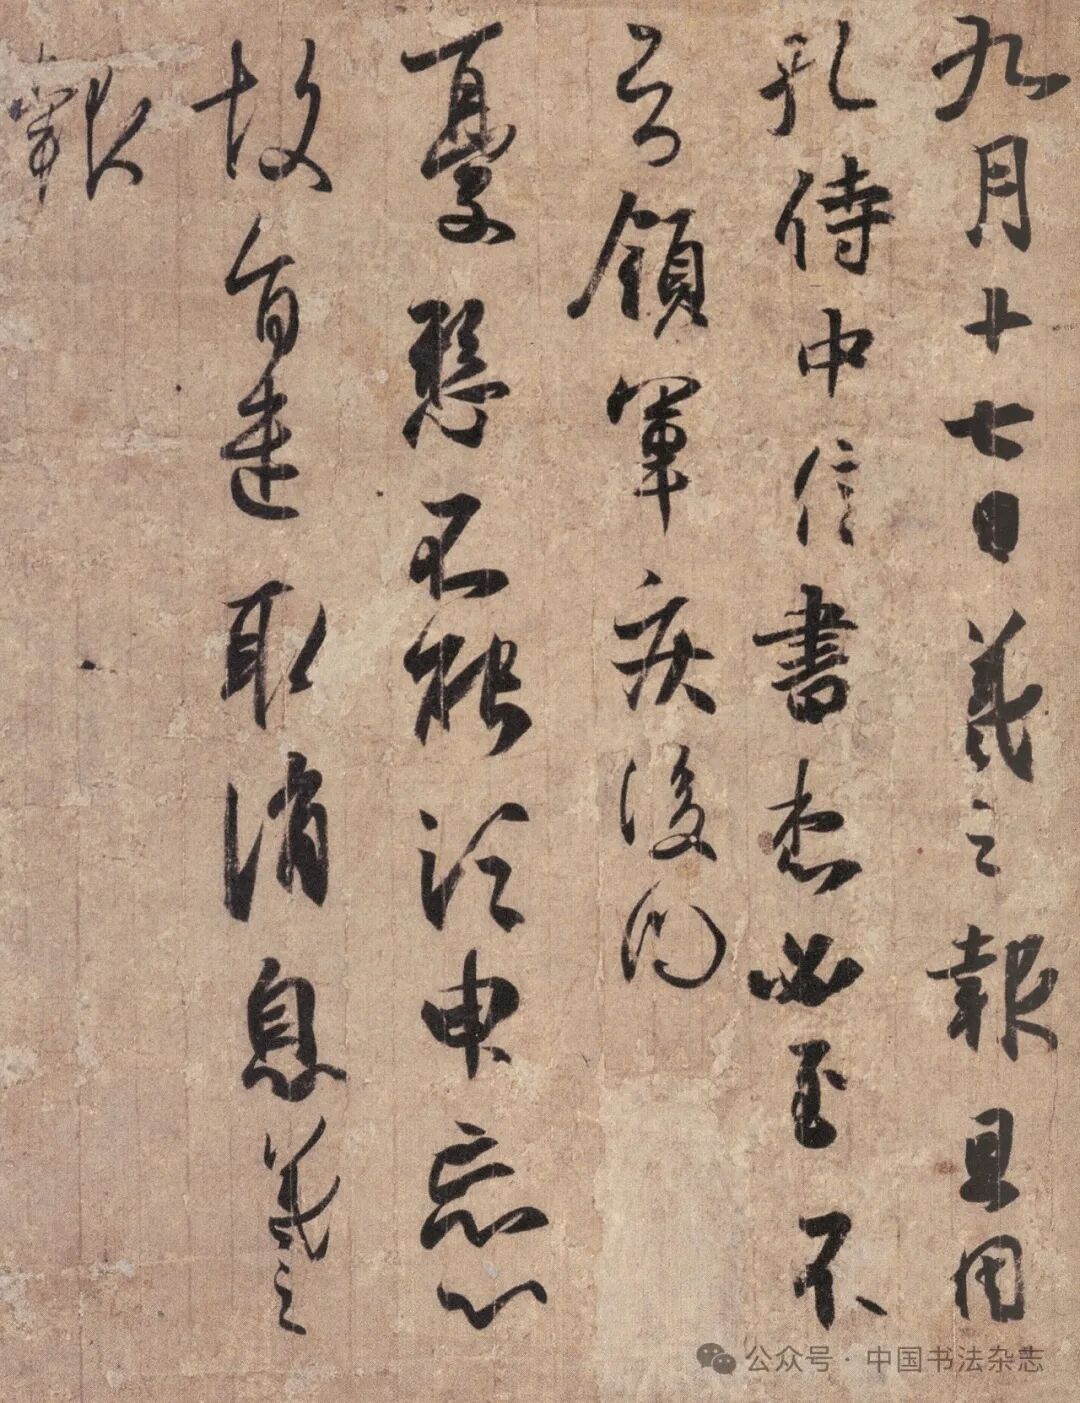 九月十七日羲之報且因
孔侍中信書想必至不
知領軍疾後問
憂懸不能須臾忘心
故旨遣取消息羲之
報
公众号·中国书法杂志